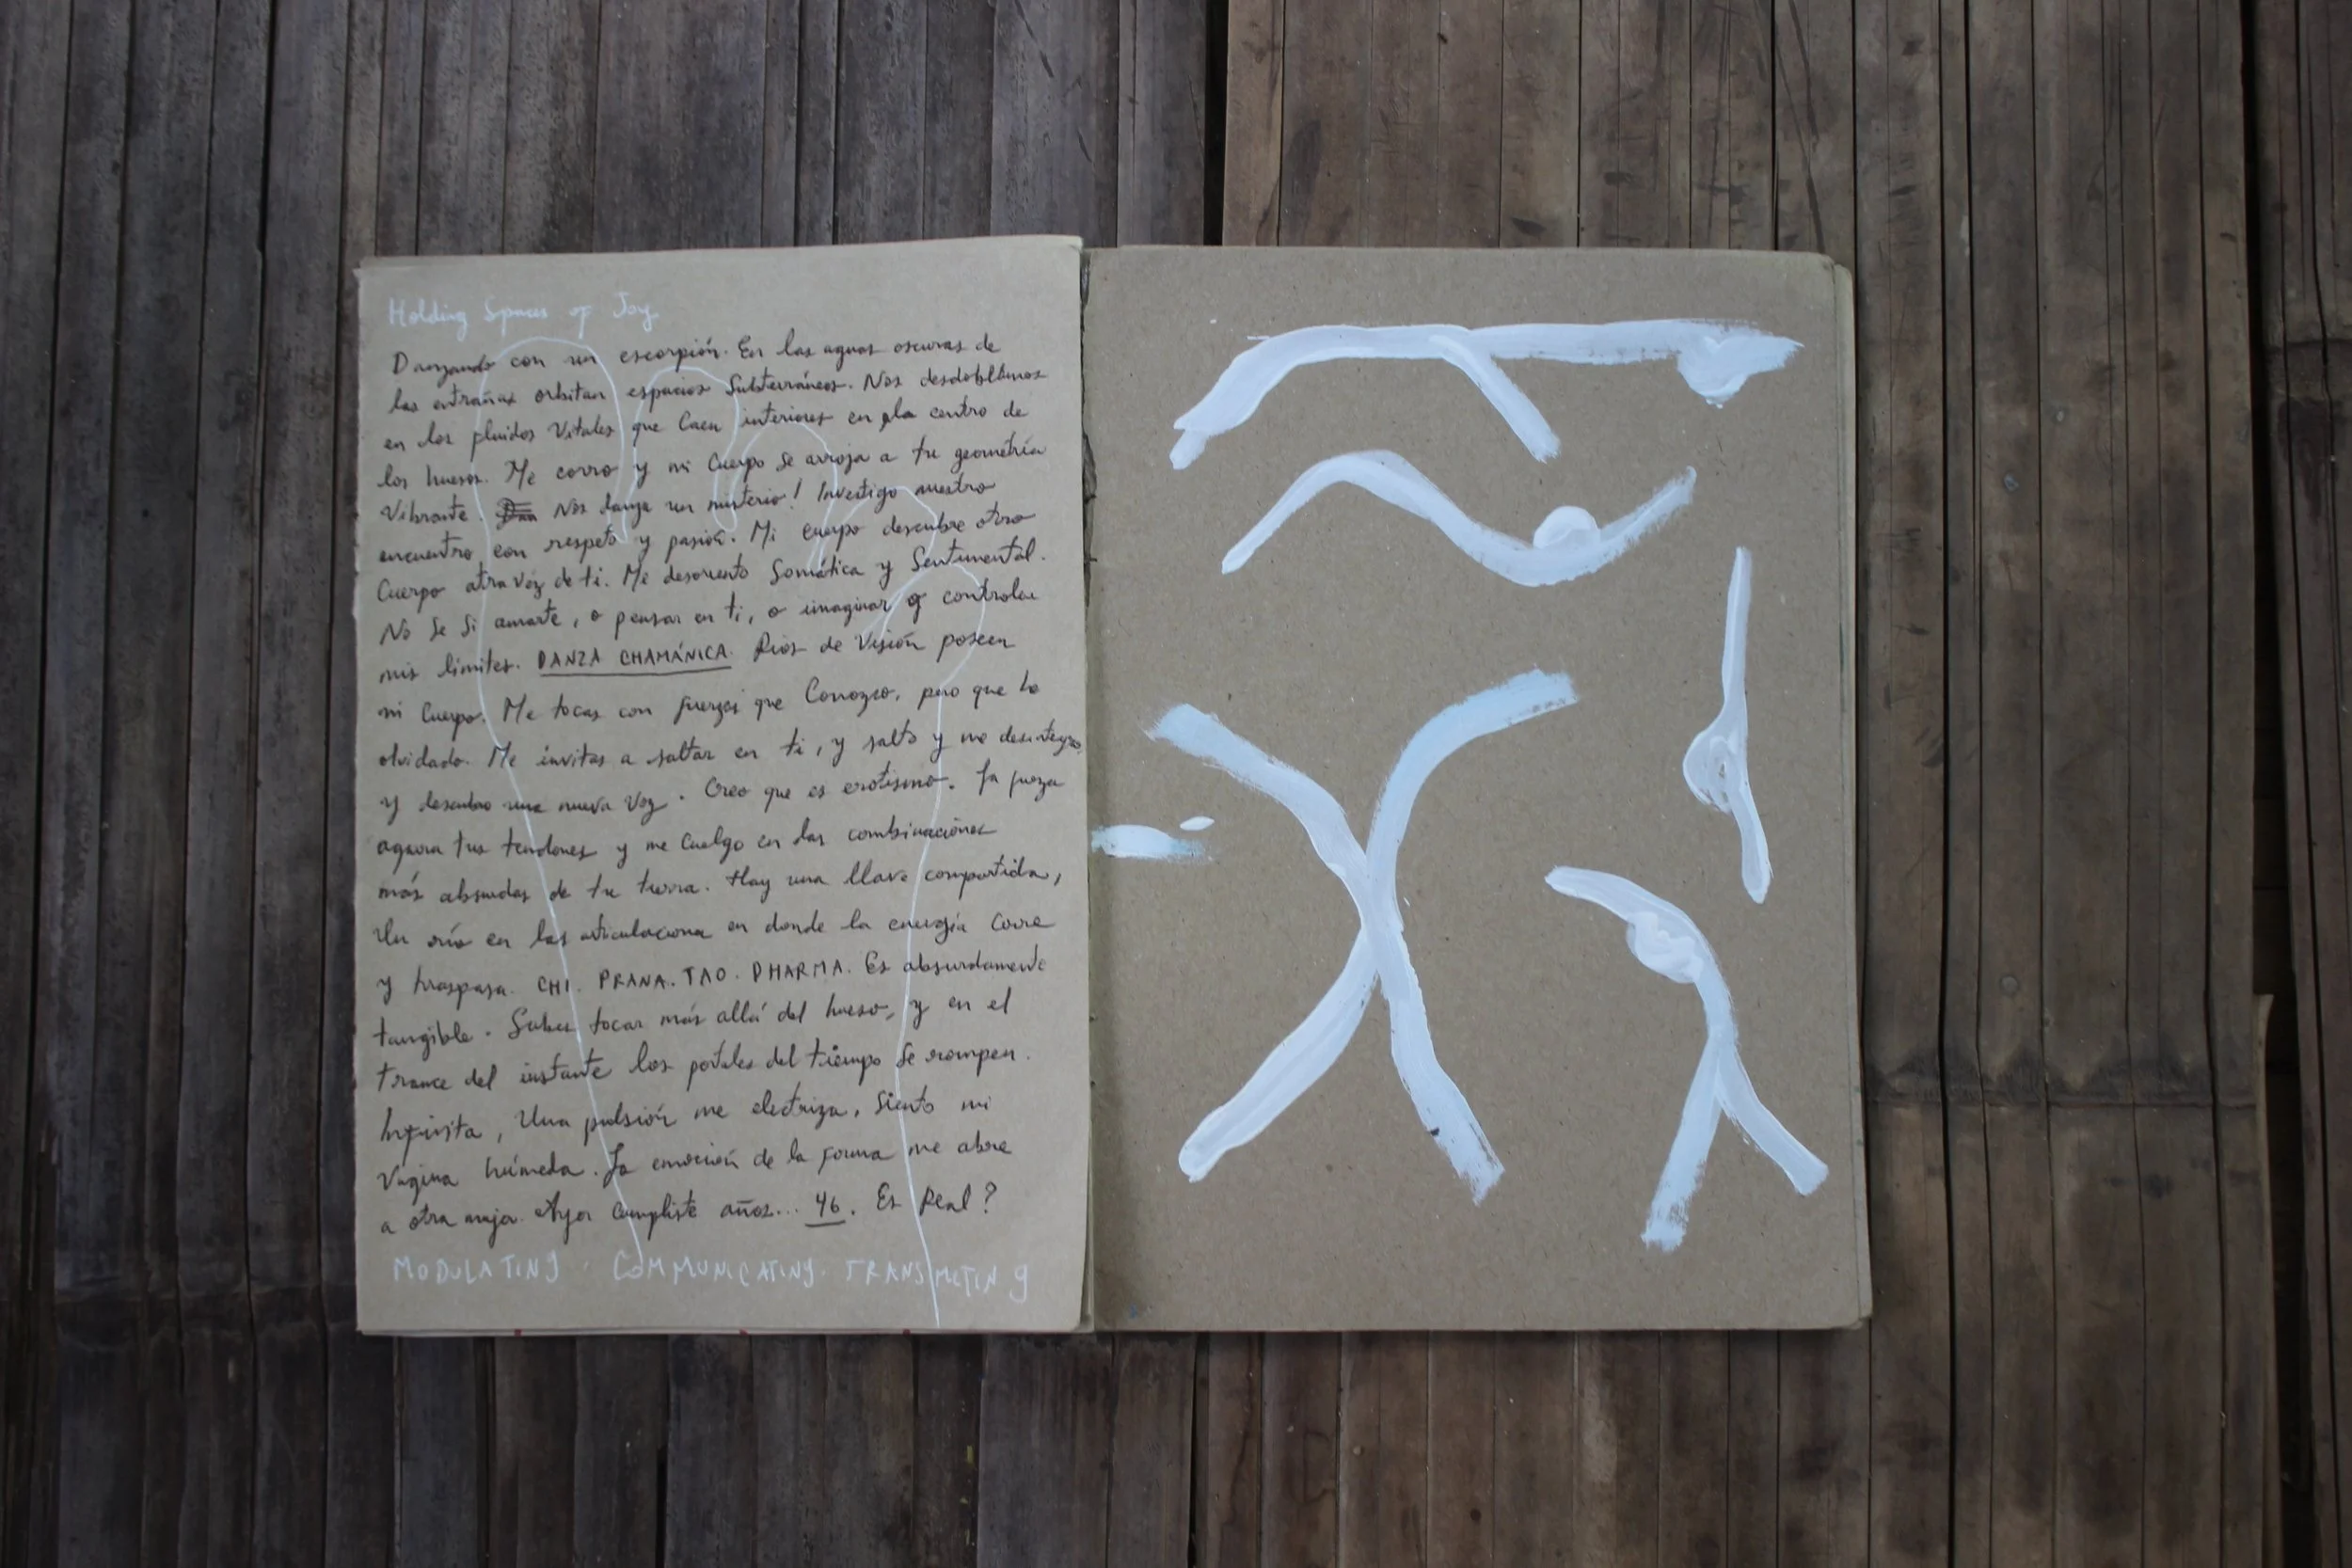 Holding Spaces of Joy
Danzando con un escorpión. En las aguas oscuras de
las entrañas orbitan espacios Subterráneos. Nos desdobllamos
en los fluidos Vitales que Caen interiores en la centro de
los huesos. Me corro y mi Cuerpo se arroja a tu geometría
Vibrante. Nos danza un misterio! Investigo nuestro
encuentro con respeto y pasión. Mi cuerpo descubre otro
Cuerpo atravéz de ti. Me desoriento Somática y Sentimental.
No Se Si amarte, o pensar en ti, o imaginar o controlar
mis límites. DANZA CHAMÁNICA. Ríos de Visión poseen
mi Cuerpo. Me tocas con fuerzas que Conozco, pero que he
olvidado. Me invitas a saltar en ti, y salto y me desintegro
y descubro una nueva Voz. Creo que es erotismo. La fuerza
agarra tus tendones y me Cuelgo en las combinaciones
más absurdas de tu tierra. Hay una llave compartida,
Un río en las articulaciones en donde la energía Corre
y traspasa. CHI. PRANA. TAO. DHARMA. Es absurdamente
tangible. Sabes tocar más allá del hueso, y en el
trance del instante los portales del tiempo Se rompen.
Una pulsión me electriza, Siento mi
Vagina húmeda. La emoción de la forma me abre
a otra mujer. Ayer Cumpliste años... 46. Es Real?
MODULATING. COMMUNICATING. TRANSMETING